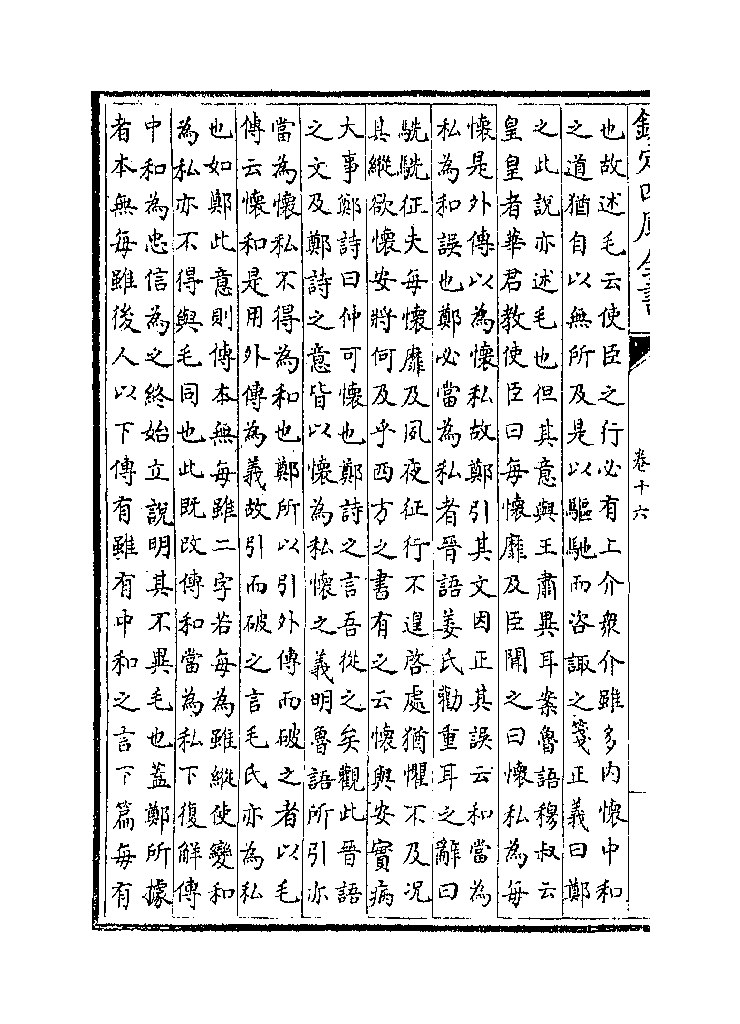 欽定四庫全書
卷十六
也故述毛云使臣之行必有上介衆介雖多内懷中和
之道猶自以無所及是以驅馳而咨諏之箋正義曰鄭
之此說亦述毛也但其意與王肅異耳案魯語穆叔云
皇皇者華君教使臣曰每懷靡及臣聞之曰懷私為每
懷是外傳以為懷私故鄭引其文因正其誤云和當為
私為和誤也鄭必當為私者晉語姜氏勸重耳之辭曰
駪駪征夫每懷靡及夙夜征行不遑啓處猶懼不及況
其縱欲懷安將何及乎西方之書有之云懷與安實病
大事鄭詩曰仲可懷也鄭詩之言吾從之矣觀此晉語
之文及鄭詩之意皆以懷為私懷之義明魯語所引亦
當為懷私不得為和也鄭所以引外傳而破之者以毛
傳云懷和是用外傳為義故引而破之言毛氏亦為私
也如鄭此意則傳本無每雖二字若每為雖縱使變和
為私亦不得與毛同也此既改傳和當為私下復解傳
中和為忠信為之終始立說明其不異毛也蓋鄭所據
者本無每雖後人以下傳有雖有中和之言下篇每有